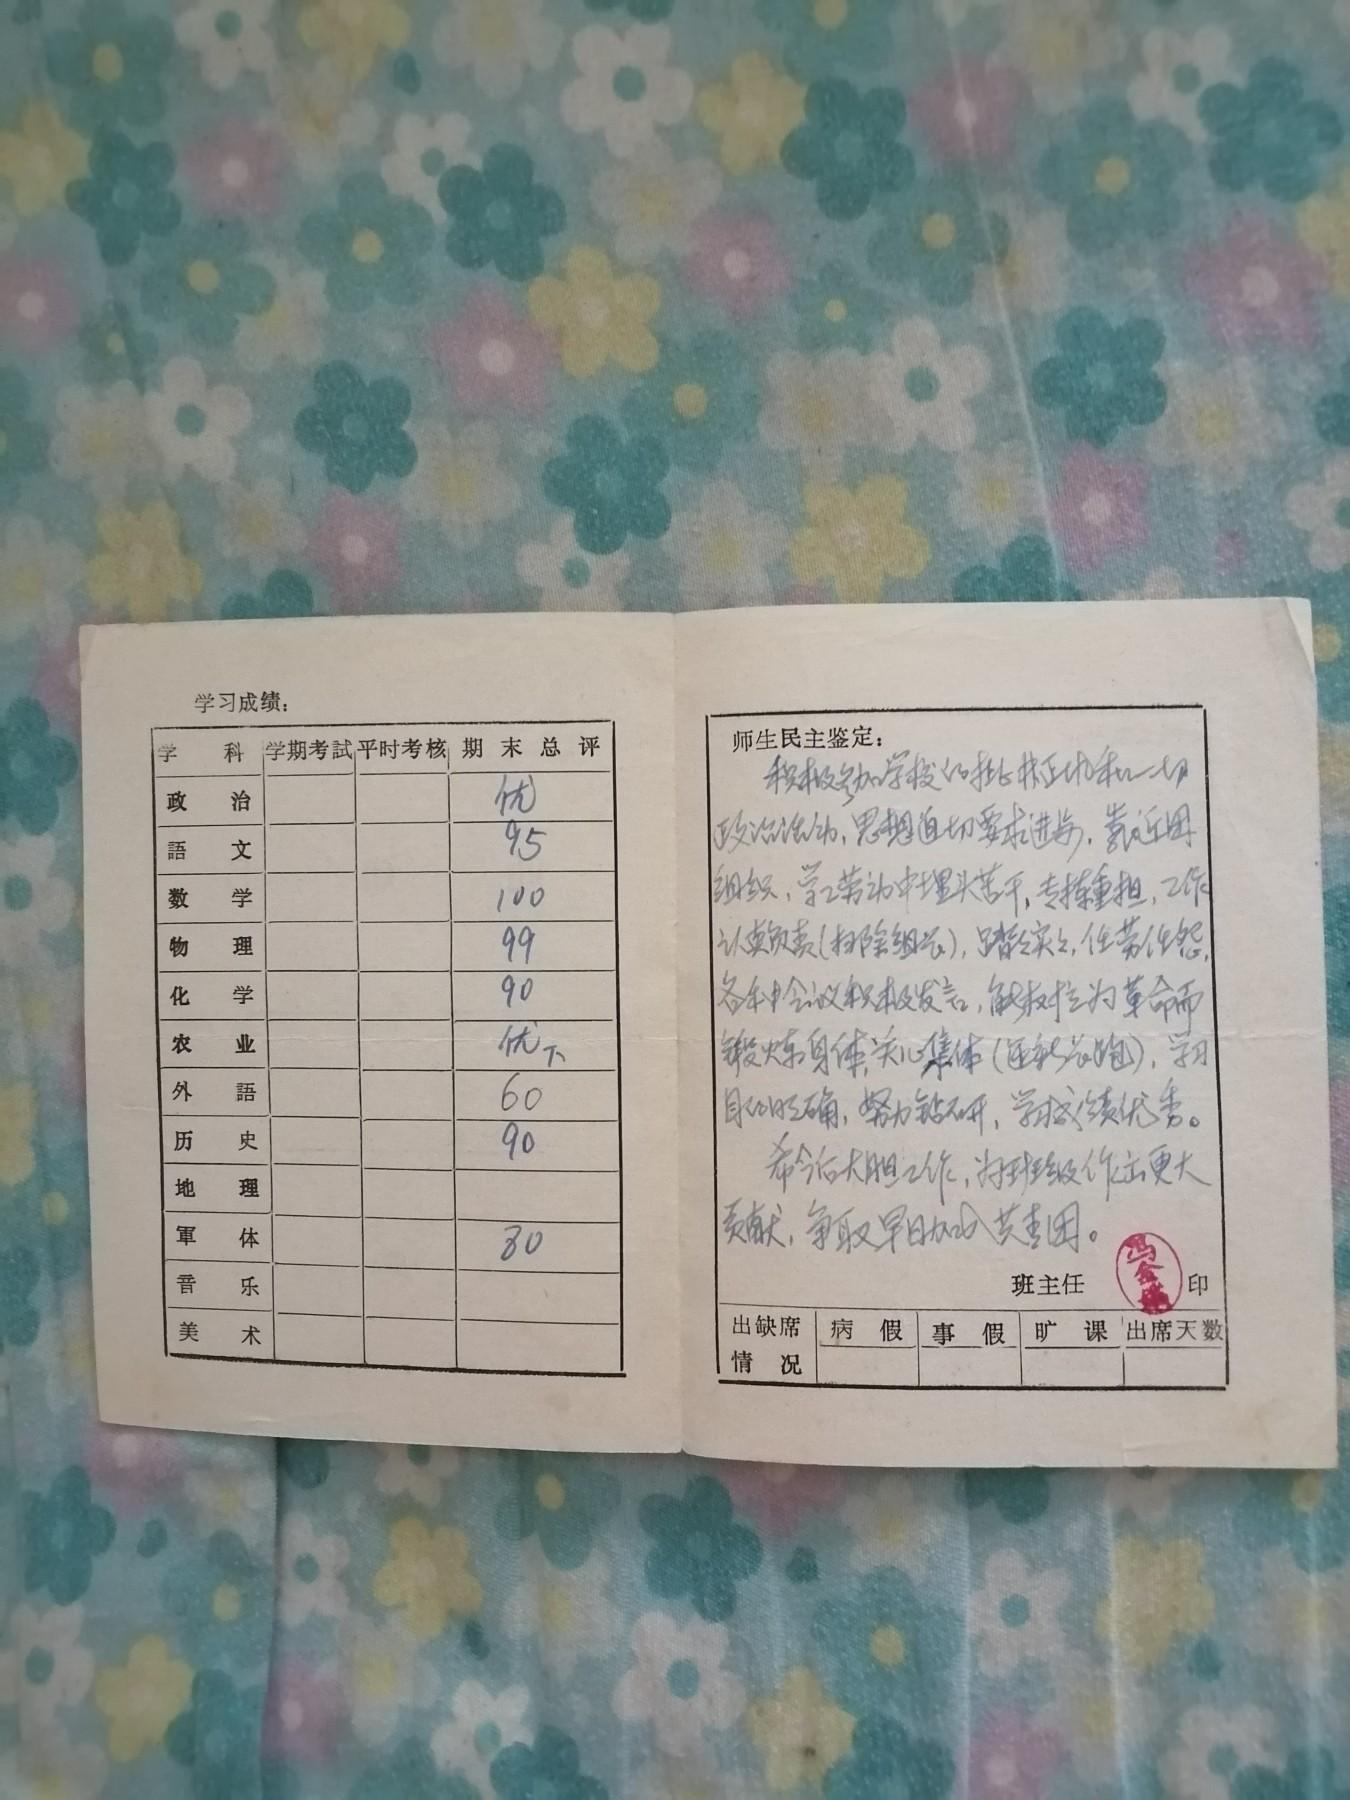 学习成绩：
学 科 学期考試 平时考核 期末总评
政 治 优
語 文 95
数 学 100
物 理 99
化 学 90
农 业 优下
外 語 60
历 史 90
地 理
軍 体 80
音 乐
美 术
师生民主鉴定：
积极参加学校的批林正功和一切
政治活动，思想迫切要求进步，靠近团
组织，学工劳动中埋头苦干，专拣重担，工作
认真负责（扫除组长），踏踏实实，任劳任怨，
各种会议积极发言，能为革命而
锻炼身体，关心集体（），学习
目的明确，努力钻研，学习成绩优秀。
希今后大胆工作，为班级作出更大
贡献，争取早日加入共青团。
班主任 冯金 印
出缺席情况 病假 事假 旷课 出席天数